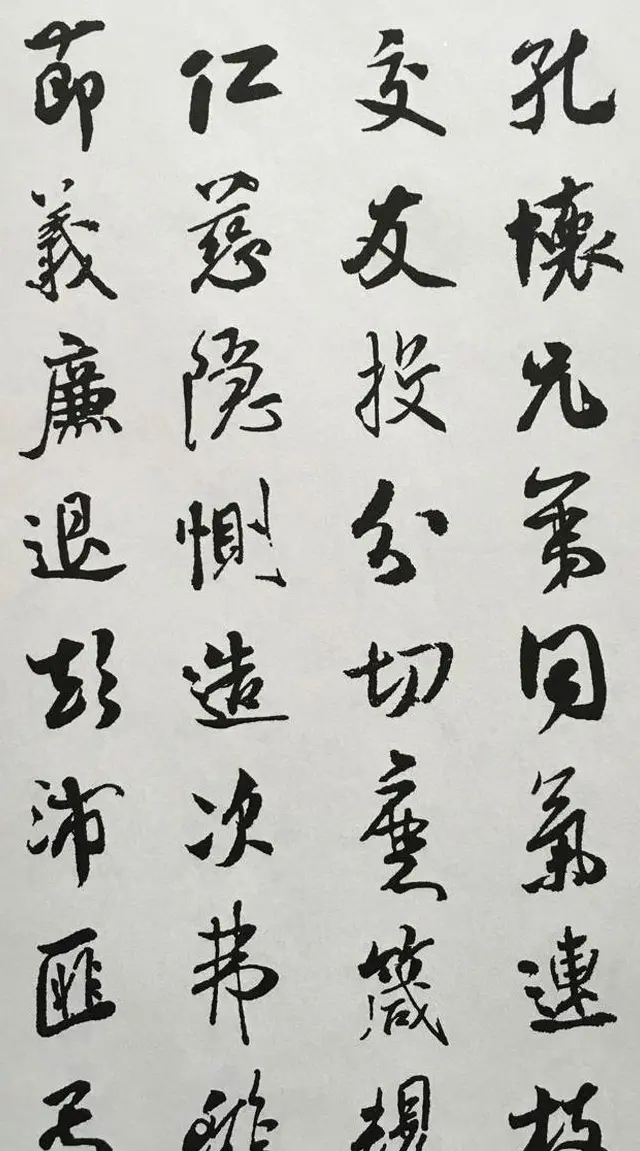 孔懷兄弟同氣連枝
交友投分切磨箴規
仁慈隱惻造次弗離
節義廉退顛沛匪